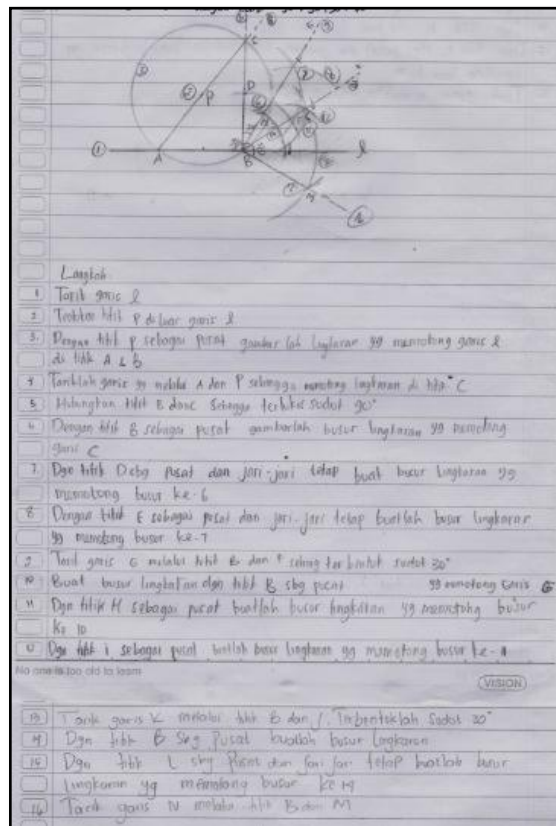 Langkah
1 Tarik garis l
2 Tentukan titik P di luar garis l
3. Dengan titik P sebagai pusat gambarlah lingkaran yg memotong garis l
di titik A & B
4 Tariklah garis yg melalui A dan P sehingga memotong lingkaran di titik C
5 Hubungkan titik B dan C sehingga terlukis sudut 90°
6 Dengan titik B sebagai pusat gambarlah busur lingkaran yg memotong
garis C
7. Dgn titik D sbg pusat dan jari-jari tetap buat busur lingkaran yg
memotong busur ke-6
8 Dengan titik E sebagai pusat dan jari-jari tetap buatlah busur lingkaran
yg memotong busur ke-7
9 Tarik garis G melalui titik B dan F terbentuk sudut 30°
10 Buat busur lingkaran dgn titik B sbg pusat yg memotong garis G
11 Dgn titik H sebagai pusat buatlah busur lingkaran yg memotong busur
ke 10
12 Dgn titik i sebagai pusat buatlah busur lingkaran yg memotong busur ke-11
No one is too old to learn
VISION
13 Tarik garis K melalui titik B dan J. Terbentuklah sudut 30°
14 Dgn titik B sbg pusat buatlah busur lingkaran
15 Dgn titik L sbg pusat dan jari jari tetap buatlah busur
lingkaran yg memotong busur ke 14
16 Tarik garis N melalui titik B dan M